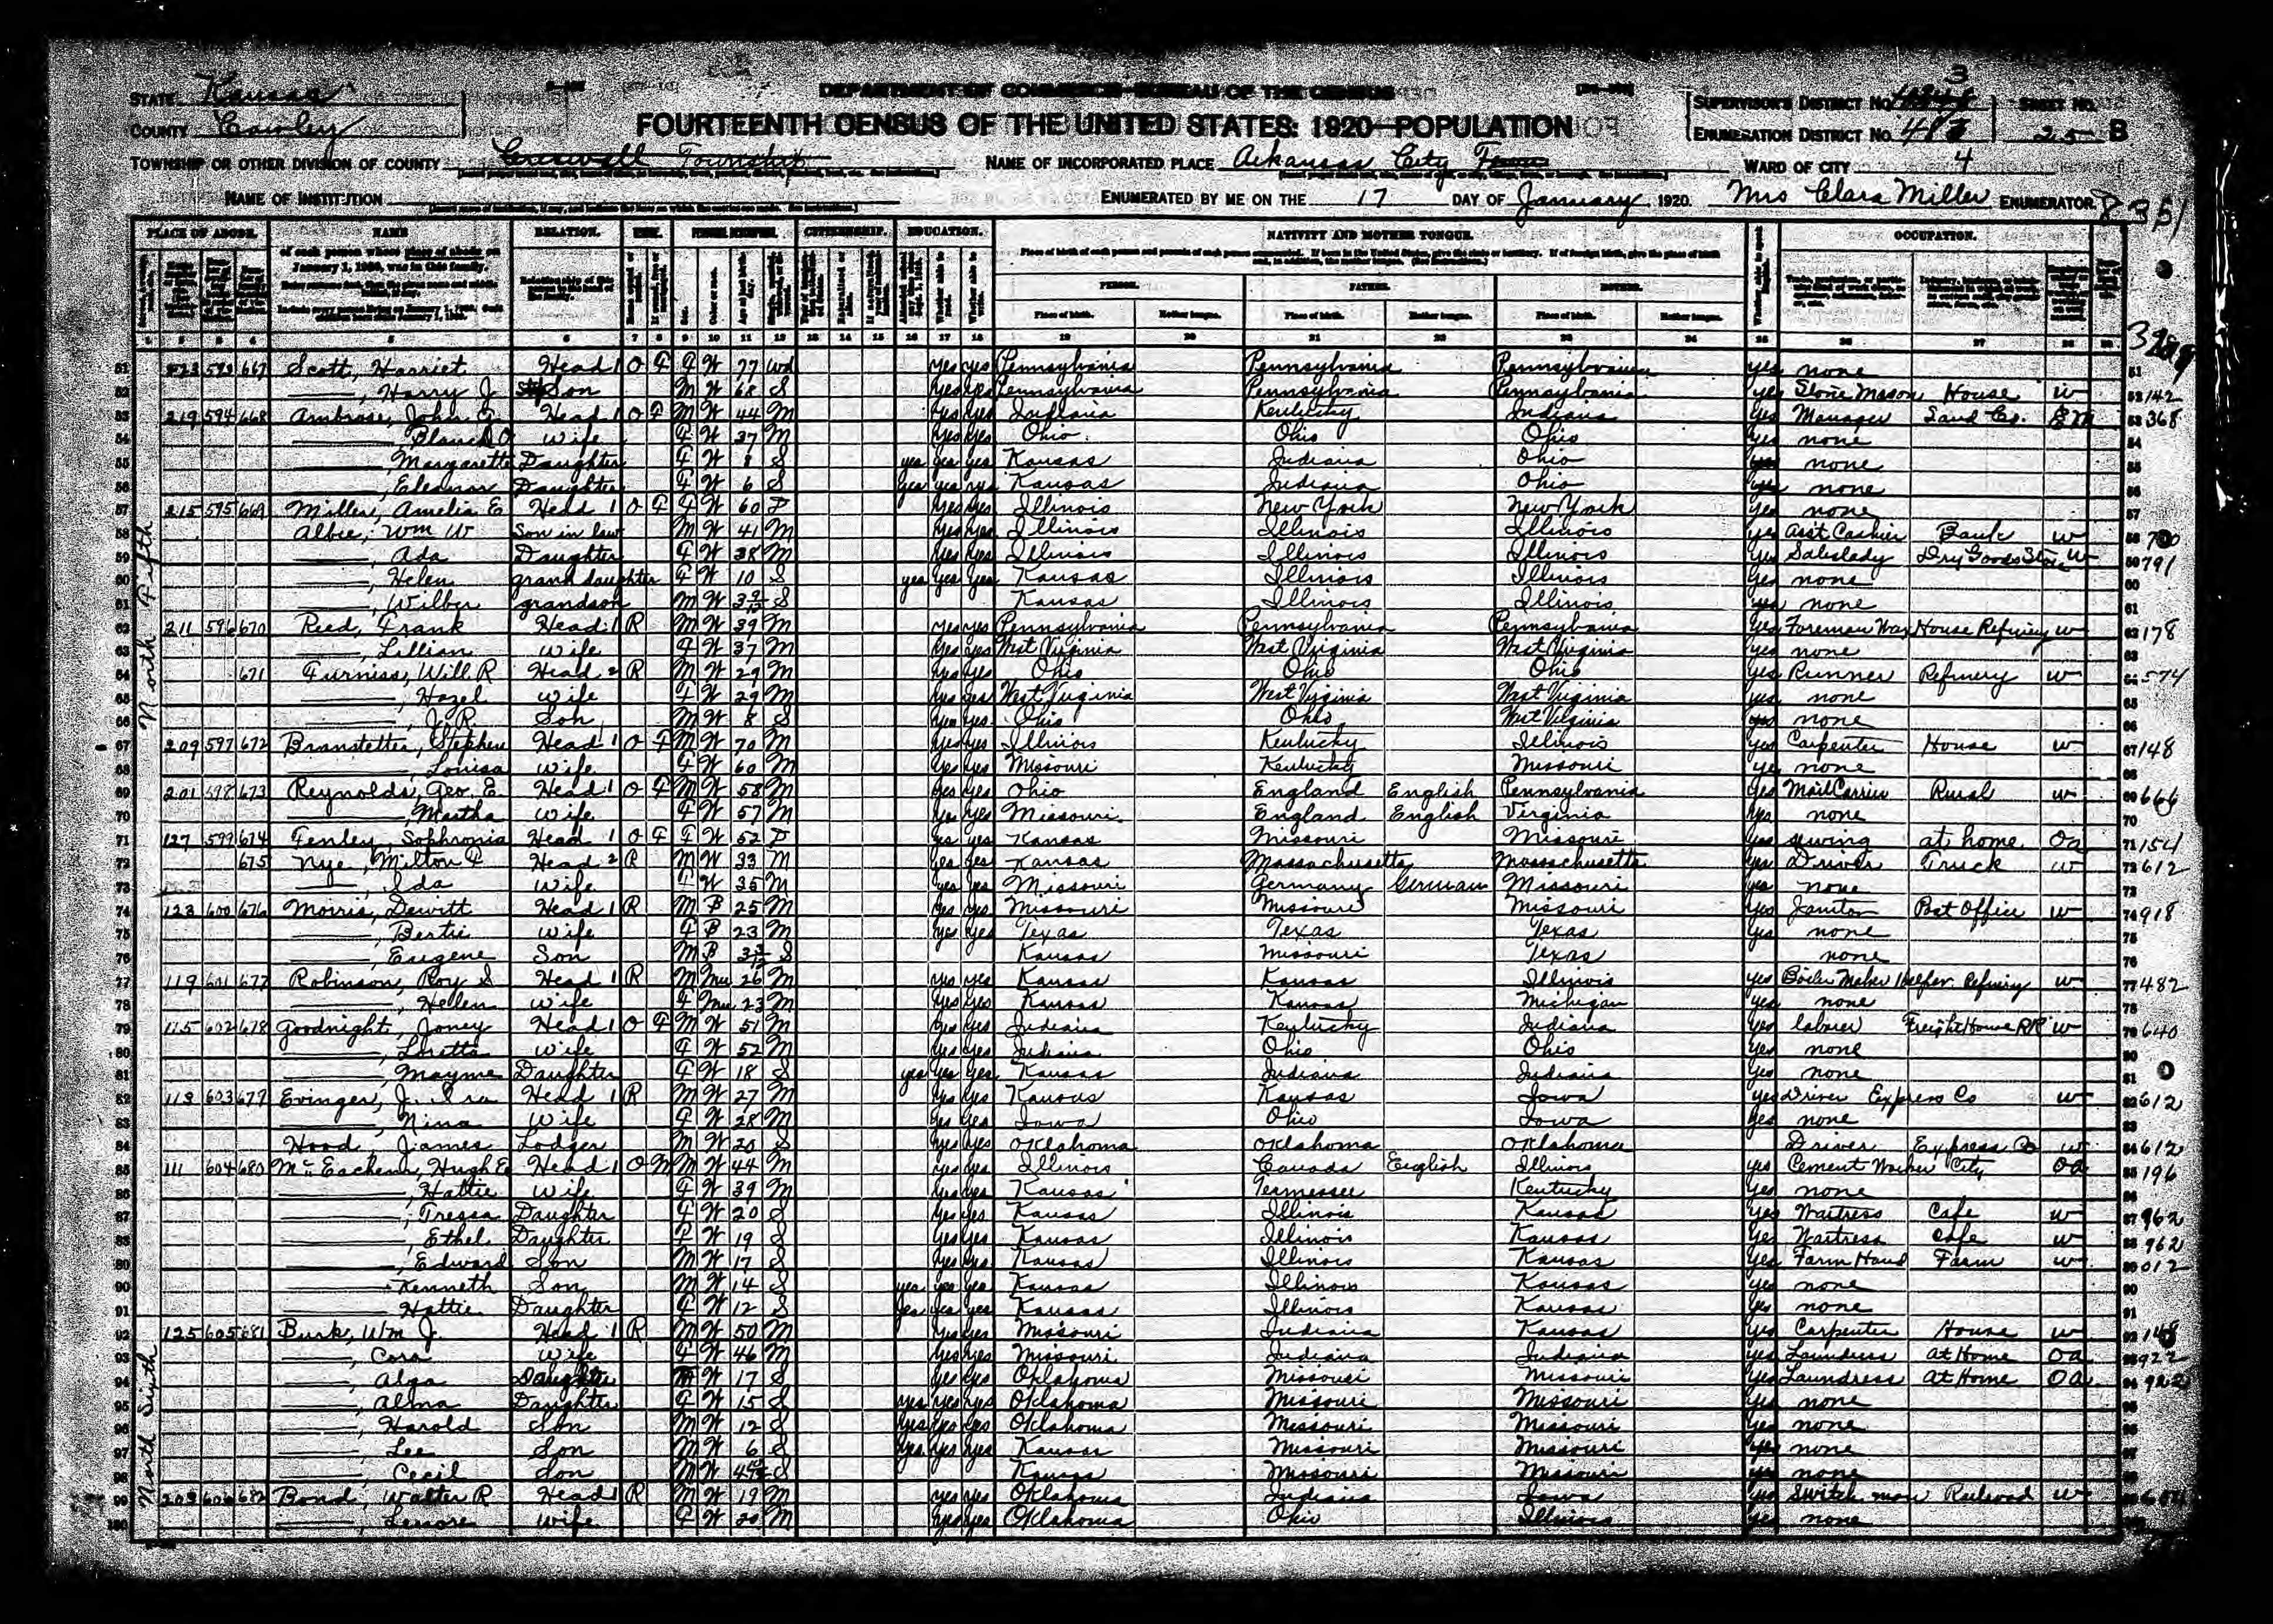 STATE Kansas
COUNTY Cowley
DEPARTMENT OF COMMERCE—BUREAU OF THE CENSUS
FOURTEENTH CENSUS OF THE UNITED STATES: 1920—POPULATION
SUPERVISOR'S DISTRICT No. 3
ENUMERATION DISTRICT No.
SHEET No. 25 B
TOWNSHIP OR OTHER DIVISION OF COUNTY Creswell Township
NAME OF INCORPORATED PLACE Arkansas City
WARD OF CITY 4
NAME OF INSTITUTION
ENUMERATED BY ME ON THE 17 DAY OF January, 1920. Mrs Clara Miller ENUMERATOR. 8351
PLACE OF ABODE. NAME RELATION. CITIZENSHIP. EDUCATION. NATIVITY AND MOTHER TONGUE. OCCUPATION.
North Fifth
51 593 667 Scott, Harriet Head 1 O F F W 77 Wd yes yes Pennsylvania Pennsylvania Pennsylvania yes none
52 Harry J Son M W 68 S yes yes Pennsylvania Pennsylvania Pennsylvania yes Stone Mason House W 142
53 219 594 668 Ambrose, John Head 1 O F M W 44 M yes yes Indiana Kentucky Indiana yes Manager Sand Co. Em 368
54 Blanch O wife F W 37 M yes yes Ohio Ohio Ohio yes none
55 Margarette Daughter F W 8 S yes yes yes Kansas Indiana Ohio none
56 Eleanor Daughter F W 6 S yes yes yes Kansas Indiana Ohio none
57 215 595 669 Miller, Amelia E Head 1 O F F W 60 D yes yes Illinois New York New York yes none
58 Albee, Wm W Son in law M W 41 M yes yes Illinois Illinois Illinois yes Asst Cashier Bank W 700
59 Ada Daughter F W 38 M yes yes Illinois Illinois Illinois yes Saleslady Dry Goods Store W 791
60 Helen grand daughter F W 10 S yes yes yes Kansas Illinois Illinois yes none
61 Wilber grandson M W 3 9/12 S Kansas Illinois Illinois none
62 211 596 670 Reed, Frank Head 1 R M W 39 M yes yes Pennsylvania Pennsylvania Pennsylvania yes Foreman Wax House Refinery W 178
63 Lillian wife F W 37 M yes yes West Virginia West Virginia West Virginia yes none
64 671 Furniss, Will R Head 2 R M W 29 M yes yes Ohio Ohio Ohio yes Runner Refinery W 574
65 Hazel wife F W 29 M yes yes West Virginia West Virginia West Virginia yes none
66 J. R. Son M W 8 S yes yes Ohio Ohio West Virginia none
67 209 597 672 Branstetter, Stephen Head 1 O F M W 70 M yes yes Illinois Kentucky Illinois yes Carpenter House W 148
68 Louisa wife F W 60 M yes yes Missouri Kentucky Missouri yes none
69 201 598 673 Reynolds, Geo. E Head 1 O F M W 58 M yes yes Ohio England English Pennsylvania yes Mail Carrier Rural W 666
70 Martha wife F W 57 M yes yes Missouri England English Virginia yes none
71 127 599 674 Fenley, Sophronia Head 1 O F F W 52 D yes yes Kansas Missouri Missouri yes sewing at home Oa 154
72 675 Nye, Milton F Head 2 R M W 33 M yes yes Kansas Massachusetts Massachusetts yes Driver Truck W 612
73 Ida wife F W 35 M yes yes Missouri Germany German Missouri yes none
74 123 600 676 Morris, Dewitt Head 1 R M B 25 M yes yes Missouri Missouri Missouri yes Janitor Post Office W 918
75 Bertie wife F B 23 M yes yes Texas Texas Texas yes none
76 Eugene Son M B 3 S Kansas Missouri Texas none
77 119 601 677 Robinson, Roy S Head 1 R M Mu 26 M yes yes Kansas Kansas Illinois yes Boiler Maker Helper Refinery W 482
78 Helen wife F Mu 23 M yes yes Kansas Kansas Michigan yes none
79 115 602 678 Goodnight, Joney Head 1 O F M W 51 M yes yes Indiana Kentucky Indiana yes laborer Freight House RR W 640
80 Loretta wife F W 52 M yes yes Indiana Ohio Ohio yes none
81 Mayme Daughter F W 18 S yes yes yes Kansas Indiana Indiana yes none
82 113 603 679 Evinger, J. Ira Head 1 R M W 27 M yes yes Kansas Kansas Iowa yes Driver Express Co W 612
83 Nina Wife F W 28 M yes yes Iowa Ohio Iowa yes none
84 Hood, James Lodger M W 20 S yes yes Oklahoma Oklahoma Oklahoma Driver Express Co W 612
85 111 604 680 McEachern, Hugh E Head 1 O M M W 44 M yes yes Illinois Canada English Illinois yes Cement Worker City Oa 196
86 Hattie wife F W 39 M yes yes Kansas Tennessee Kentucky yes none
87 Tressa Daughter F W 20 S yes yes Kansas Illinois Kansas yes Waitress Cafe W 962
88 Ethel Daughter F W 19 S yes yes Kansas Illinois Kansas yes Waitress Cafe W 962
89 Edward Son M W 17 S yes yes Kansas Illinois Kansas yes Farm Hand Farm W 012
90 Kenneth Son M W 14 S yes yes yes Kansas Illinois Kansas yes none
91 Hattie Daughter F W 12 S yes yes yes Kansas Illinois Kansas yes none
North Sixth
92 125 605 681 Burk, Wm J. Head 1 R M W 50 M yes yes Missouri Indiana Kansas yes Carpenter House W 148
93 Cora wife F W 46 M yes yes Missouri Indiana Indiana yes Laundress at Home Oa 922
94 Alga Daughter F W 17 S yes yes Oklahoma Missouri Missouri yes Laundress at Home Oa 922
95 Alma Daughter F W 15 S yes yes yes Oklahoma Missouri Missouri yes none
96 Harold Son M W 12 S yes yes yes Oklahoma Missouri Missouri yes none
97 Lee Son M W 6 S yes yes yes Kansas Missouri Missouri none
98 Cecil Son M W 4 S Kansas Missouri Missouri none
99 203 606 682 Bond, Walter R Head 1 R M W 19 M yes yes Oklahoma Indiana Iowa yes Switch man Railroad W
100 Lenore wife F W 20 M yes yes Oklahoma Ohio Illinois yes none